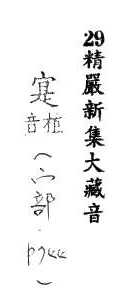 29精嚴新集大藏音
寔音植(宀部.P744)